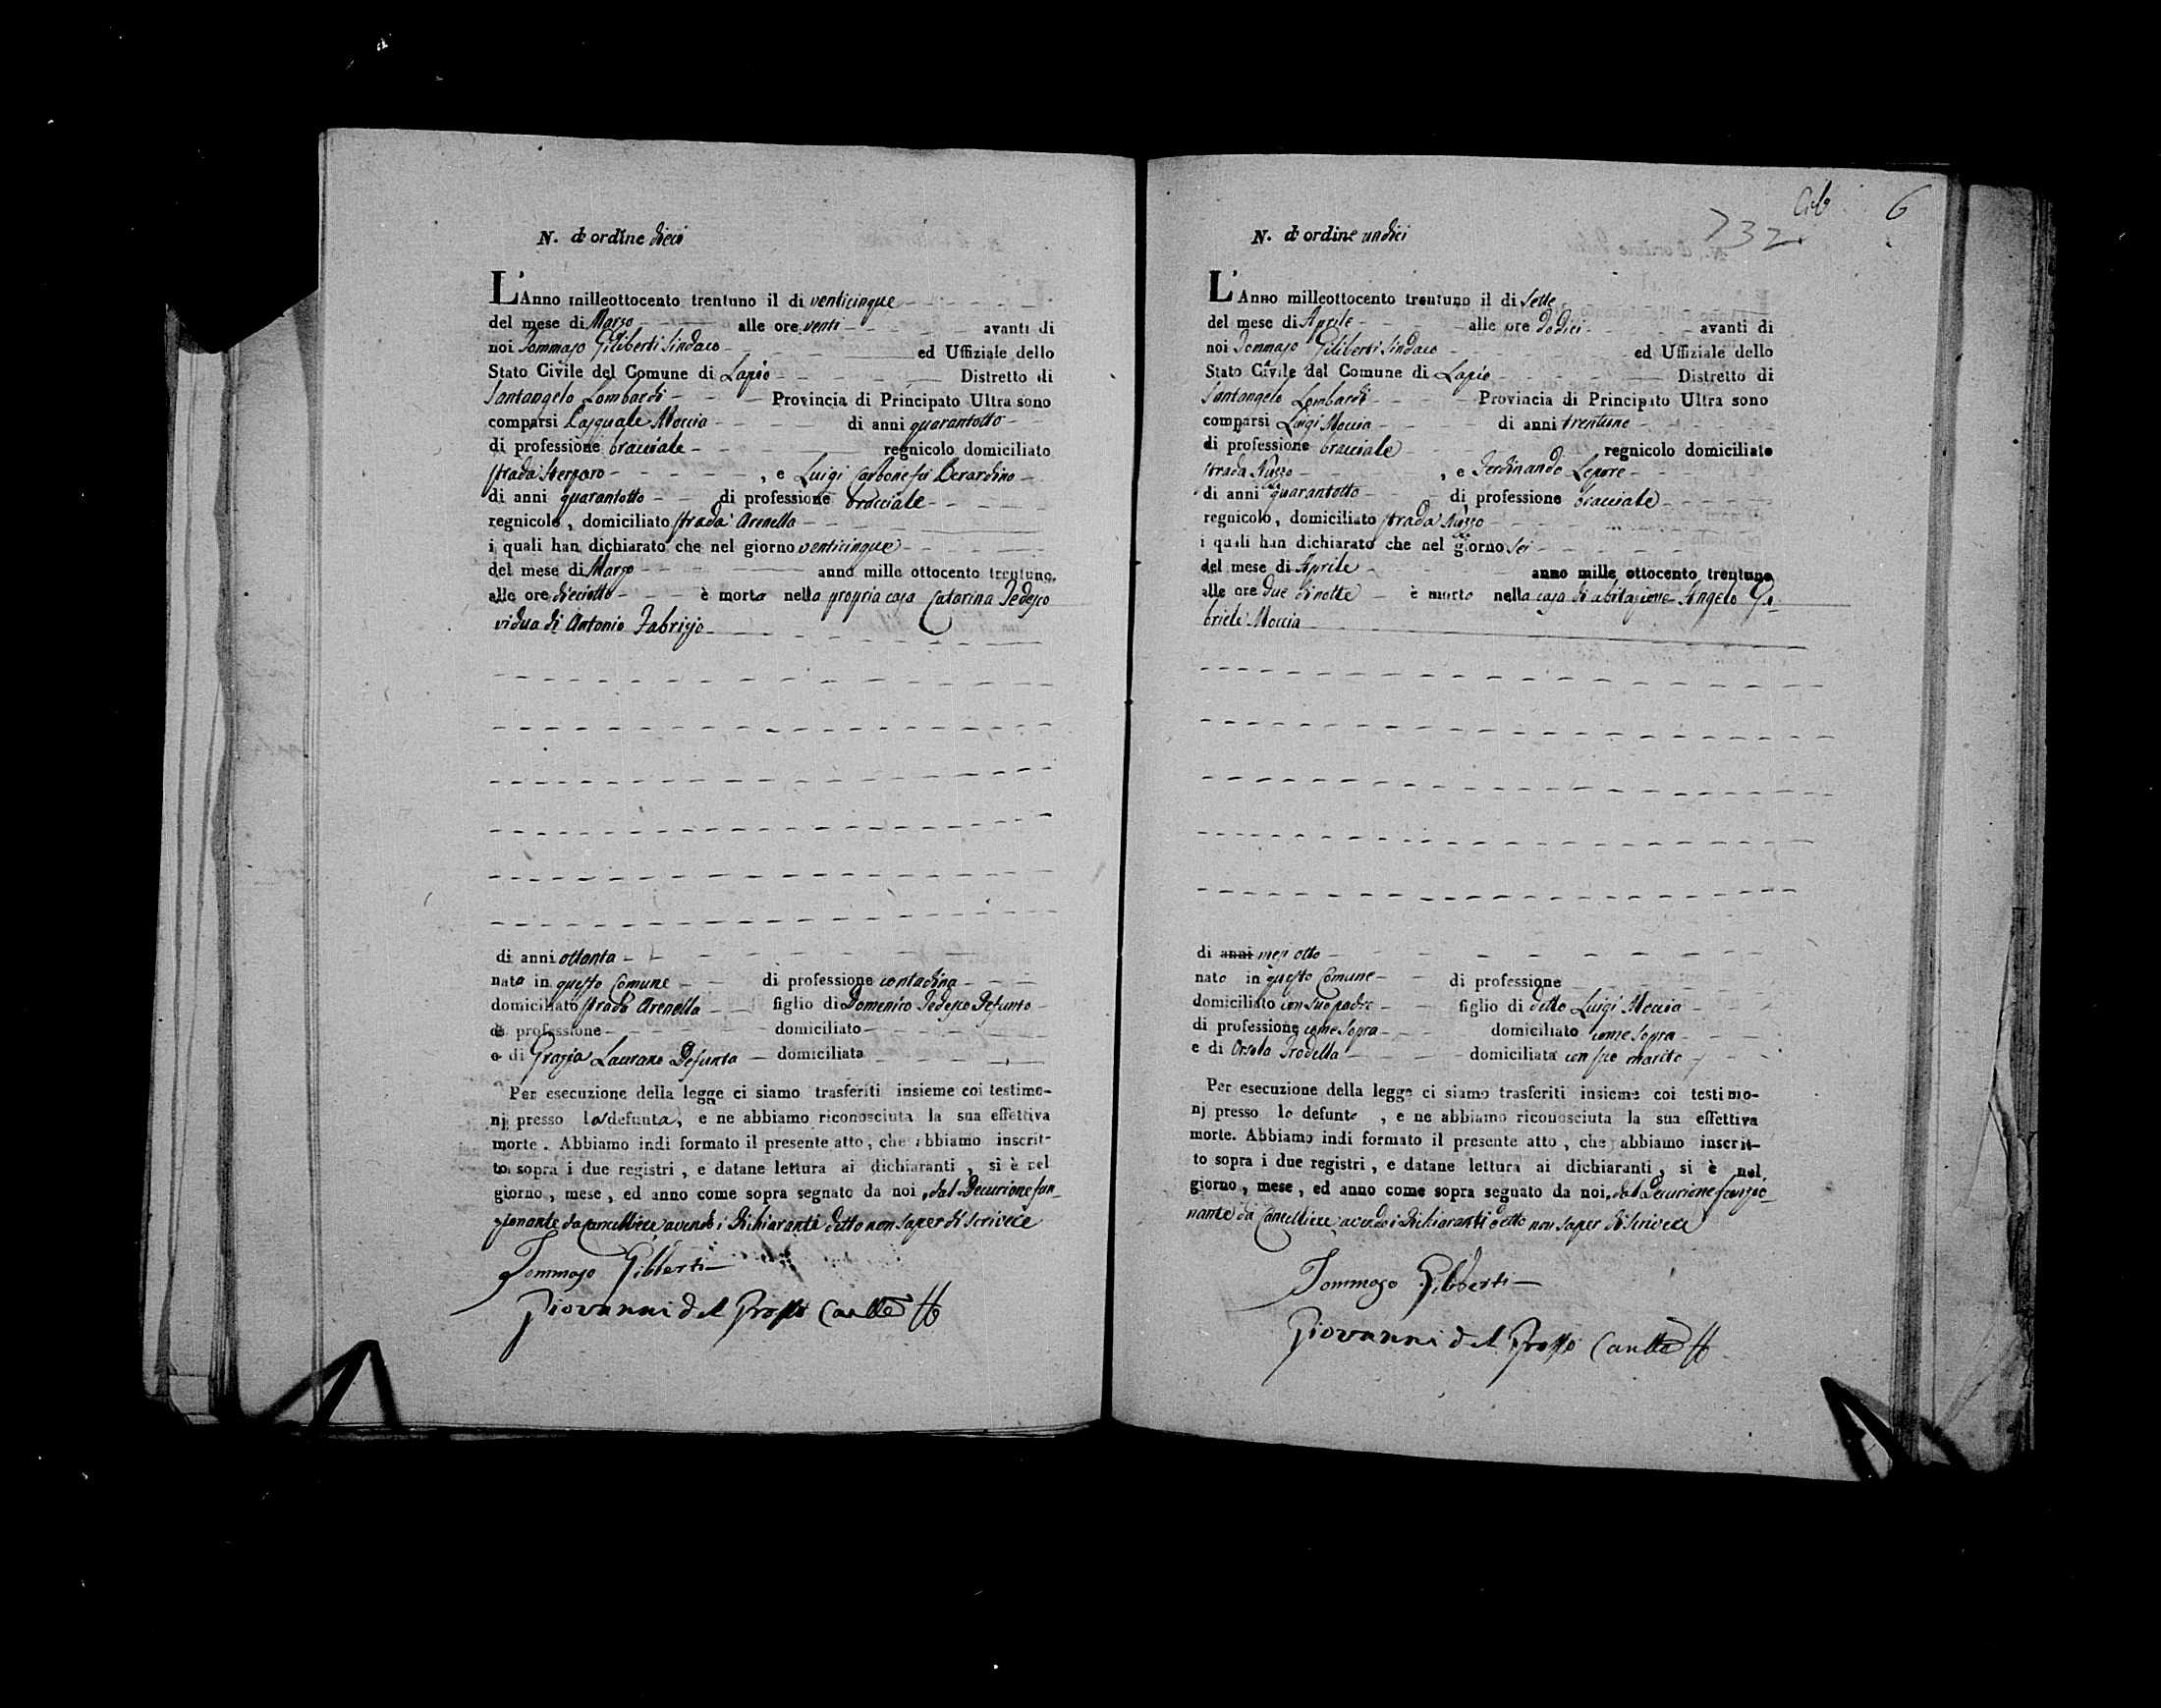 N. d'ordine dieci
L'Anno milleottocento trentuno il di venticinque
del mese di Marzo alle ore venti avanti di
noi Tommaso Giliberti Sindaco ed Uffiziale dello
Stato Civile del Comune di Lapio Distretto di
Santangelo Lombardi Provincia di Principato Ultra sono
comparsi Pasquale Moccia di anni quarantotto
di professione bracciale regnicolo domiciliato
strada , e Luigi Carbone fu Berardino
di anni quarantotto di professione bracciale
regnicolo, domiciliato strada Arenella
i quali han dichiarato che nel giorno venticinque
del mese di Marzo anno mille ottocento trentuno,
alle ore dieciotto è morta nella propria casa Catarina Tedesco
vidua di Antonio Fabrizio
di anni ottanta
nata in questo Comune di professione contadina
domiciliato strada Arenella figlio di Domenico Tedesco Defunto
di professione domiciliato
e di Grazia Laurano Defunta domiciliata
Per esecuzione della legge ci siamo trasferiti insieme coi testimo-
nj presso la defunta, e ne abbiamo riconosciuta la sua effettiva
morte. Abbiamo indi formato il presente atto, che abbiamo inscrit-
to sopra i due registri, e datane lettura ai dichiaranti, si è nel
giorno, mese, ed anno come sopra segnato da noi, dal Decurione fun_
zionante da Cancelliere avendo i Dichiaranti detto non saper di scrivere
Tommaso Giliberti
Giovanni del Grosso Canlle
Cib 6
732
N. d'ordine undici
L'Anno milleottocento trentuno il di sette
del mese di Aprile alle ore dodici avanti di
noi Tommaso Giliberti Sindaco ed Uffiziale dello
Stato Civile del Comune di Lapio Distretto di
Santangelo Lombardi Provincia di Principato Ultra sono
comparsi Luigi Moccia di anni trentuno
di professione bracciale regnicolo domiciliato
strada , e Ferdinando Lepore
di anni quarantotto di professione bracciale
regnicolo, domiciliato strada
i quali han dichiarato che nel giorno sei
del mese di Aprile anno mille ottocento trentuno
alle ore due di notte è morto nella casa di abitazione Angelo Ga_
briele Moccia
di anni mesi otto
nato in questo Comune di professione
domiciliato con suo padre figlio di detto Luigi Moccia
di professione come sopra domiciliato come sopra
e di Orsola Trodella domiciliata con suo marito
Per esecuzione della legge ci siamo trasferiti insieme coi testimo-
nj presso lo defunto , e ne abbiamo riconosciuta la sua effettiva
morte. Abbiamo indi formato il presente atto, che abbiamo inscrit-
to sopra i due registri, e datane lettura ai dichiaranti, si è nel
giorno, mese, ed anno come sopra segnato da noi, dal Decurione funzio_
nante da Cancelliere avendo i Dichiaranti detto non saper di scrivere
Tommaso Giliberti
Giovanni del Grosso Canlle